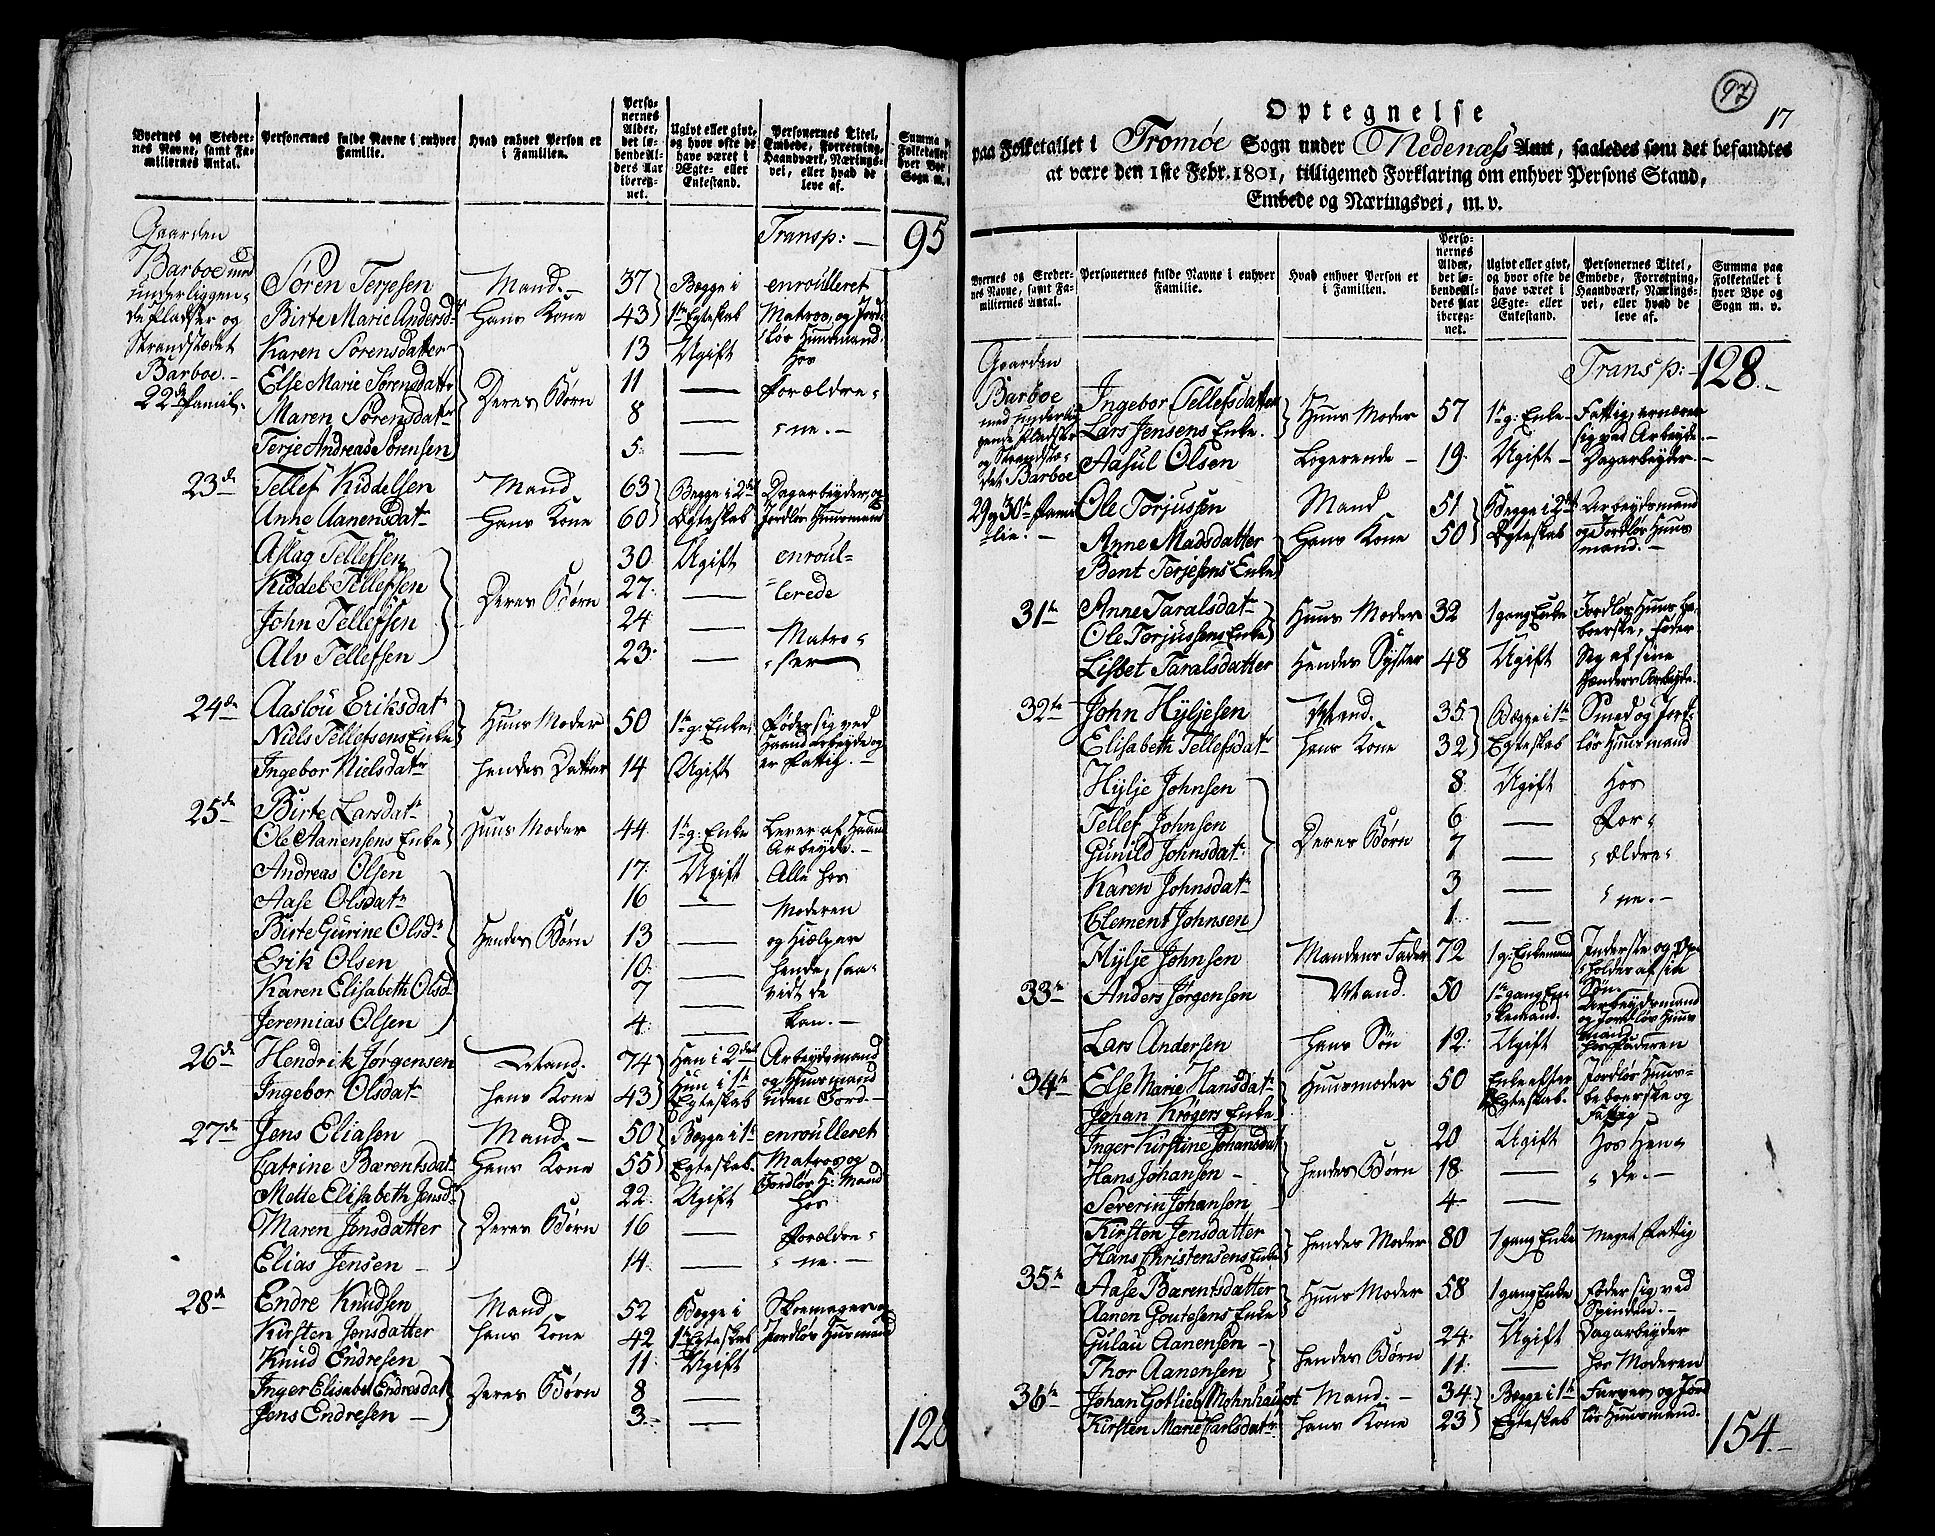 Byernes og Stedernes Navne, samt Familiernes Antal.
Personernes fulde Navne i enhver Familie.
Hvad enhver Person er i Familien.
Personernes Alder, det løbende Alders Aar iberegnet.
Ugivt eller givt, og hvor ofte de have været i Ægte- eller Enkestand.
Personernes Titel, Embede, Forretning, Haandværk, Næringsvei, eller hvad de leve af.
Gaarden Transp: — 95
Barboe med underliggende Pladser og Strandstædet Barboe. —
22de Famil-
Søren Terjesen Mand. — 37 Begge i enroulleret
Birte Marie Andersdr Hans Kone 43 1te Egteskab Matros, og Jord-
Karen Sørensdatter 13 Ugift løs Huusmand. hos
Else Marie Sørensdattr 11 — Forældre-
Maren Sørensdatr Deres Børn 8 — -ne. —
Terje Andreas Sørensen 5 —
23de Tellef Kiddelsen Mand 63 Begge i 2det Dagarbeyder, og
Anne Aanensdatr Hans Kone 60 Egteskab Jordløs Huusmand
Aslag Tellefsen 30 Ugift enroul-
Kiddel Tellefsen Deres Børn 27 — lerede
John Tellefsen 24 — Matro-
Alv Tellefsen 23 — ser
24de Aaslou Eriksdatr
Niels Tellefsens Enke Huus Moder 50 1te g: Enke føder sig ved Haandarbeyde og er Fattig. —
Ingebor Nielsdatr hendes Datter 14 Ugift
25de Birte Larsdatr
Ole Aanensens Enke Huus Moder 44 1te g: Enke Lever af Haand Arbeyde. —
Andreas Olsen 17 Ugift Alle hos
Aase Olsdatr 16 — Moderen
Birte Gurine Olsdr Hendes Børn 13 — og hielper
Erik Olsen 10 — hende, saa-
Karen Elisabeth Olsd- 7 — vidt de
Jeremias Olsen 4 — kan. —
26de Hendrik Jørgensen Mand. 74 Han i 2det Arbeydsmand
Ingebor Olsdatr hans Kone 43 Hun i 1te Egteskab og Huusmand uden Jord —
27de Jens Eliasen Mand. — 50 Begge i 1te enroulleret
Catrine Bærentsdatr Hans Kone 55 Egteskab. Matros og
Mette Elisabeth Jensdr 22 Ugift Jordløs H: Mand hos
Maren Jensdatter Deres Børn 16 — Forældre-
Elias Jensen — 14 — -ne. —
28de Endre Knudsen Mand — 52 Begge i Skoemager og
Kirsten Jensdatter hans Kone 42 1te Egteskab Jordløs Huusmand
Knud Endresen 11 Ugift
Inger Elisabet Endresdatr Deres Børn 8 —
Jens Endresen — 3 —
128
97
17
Optegnelse
paa Folketallet i Tromøe Sogn under Nedenæss Amt, saaledes som det befandtes
at være den 1ste Febr. 1801, tilligemed Forklaring om enhver Persons Stand,
Embede og Næringsvei, m. v.
Byernes og Stedernes Navne, samt Familiernes Antal.
Personernes fulde Navne i enhver Familie.
Hvad enhver Person er i Familien.
Personernes Alder, det løbende Alders Aar iberegnet.
Ugivt eller givt, og hvor ofte de have været i Ægte- eller Enkestand.
Personernes Titel, Embede, Forretning, Haandværk, Næringsvei, eller hvad de leve af.
Summa paa Folketallet i hver Bye og Sogn m. v.
Gaarden Transp: — 128. —
Barboe med underliggende Pladser og Strandstædet Barboe
Ingebor Tellefsdatter
Lars Jensens Enke. Huus Moder 57 1te g: Enke — Fattig, ernærer sig ved Arbeyde. —
Aasul Olsen Logerende — 19 Ugift — Dagarbeyder. —
29 og 30te Familie. — Ole Torjussen Mand 51 Begge i 2det Arbeydsmand
Anne Madsdatter Hans Kone 50 Egteskab og Jordløs Huusmand. —
Bent Terjesens Enke
31te Anne Taralsdatr Huus Moder 32 1 gang Enke Jordløs Huus Beboerske, føder
Ole Torjussens Enke
Lisbet Taralsdatter Hendes Syster 48 Ugift Sig af sine Hænders Arbeyde.
32te John Hyljesen Mand. 35 Begge i 1te Smed og Jord-
Elisabeth Tellefsdatr hans Kone 32 Egteskab løs Huusmand
Hylje Johnsen 8 Ugift Hos
Tellef Johnsen 6 — For-
Gunild Johnsdatr Deres Børn 7 — -ældre-
Karen Johnsdatr 3 — -ne. —
Clement Johnsen 1 —
Hylje Johnsen Mandens Fader 72 1 g: Enkemand Inderste og Opholdes af sin Søn. —
33te Anders Jørgensen Mand. 50 1te gang Enkemand. Arbeydsmand og Jordløs Huus Mand
Lars Andersen hans Søn 12 Ugift hos Faderen
34te Else Marie Hansdatr Huusmoder 50 Enke efter Jordløs Huus-
Johan Krøgers Enke Egteskab. beboerske og Fattig
Inger Kirstine Johansdatr 20 Ugift Hos Hen-
Hans Johansen — hendes Børn 18 — -de. —
Severin Johansen 4 —
Kirsten Jensdatter
Hans Christensens Enke hendes Moder 80 1 gang Enke Meget Fattig
35te Aase Barentsdatter Huus Moder 58 1 gang Enke Føder sig ved
Aanen Goutesens Enke Spinden. —
Gulau Aanensen — hendes Børn 24 Ugift Dagarbeyder
Thor Aanensen 11 — hos Moderen
36te Johan Gotlieb Mohnhaupt Mand. — 34 Begge i 1te Farver, og Jord
Kirsten Marie Carlsdatr hans Kone 23 Egteskab løs Huusmand.
154. —